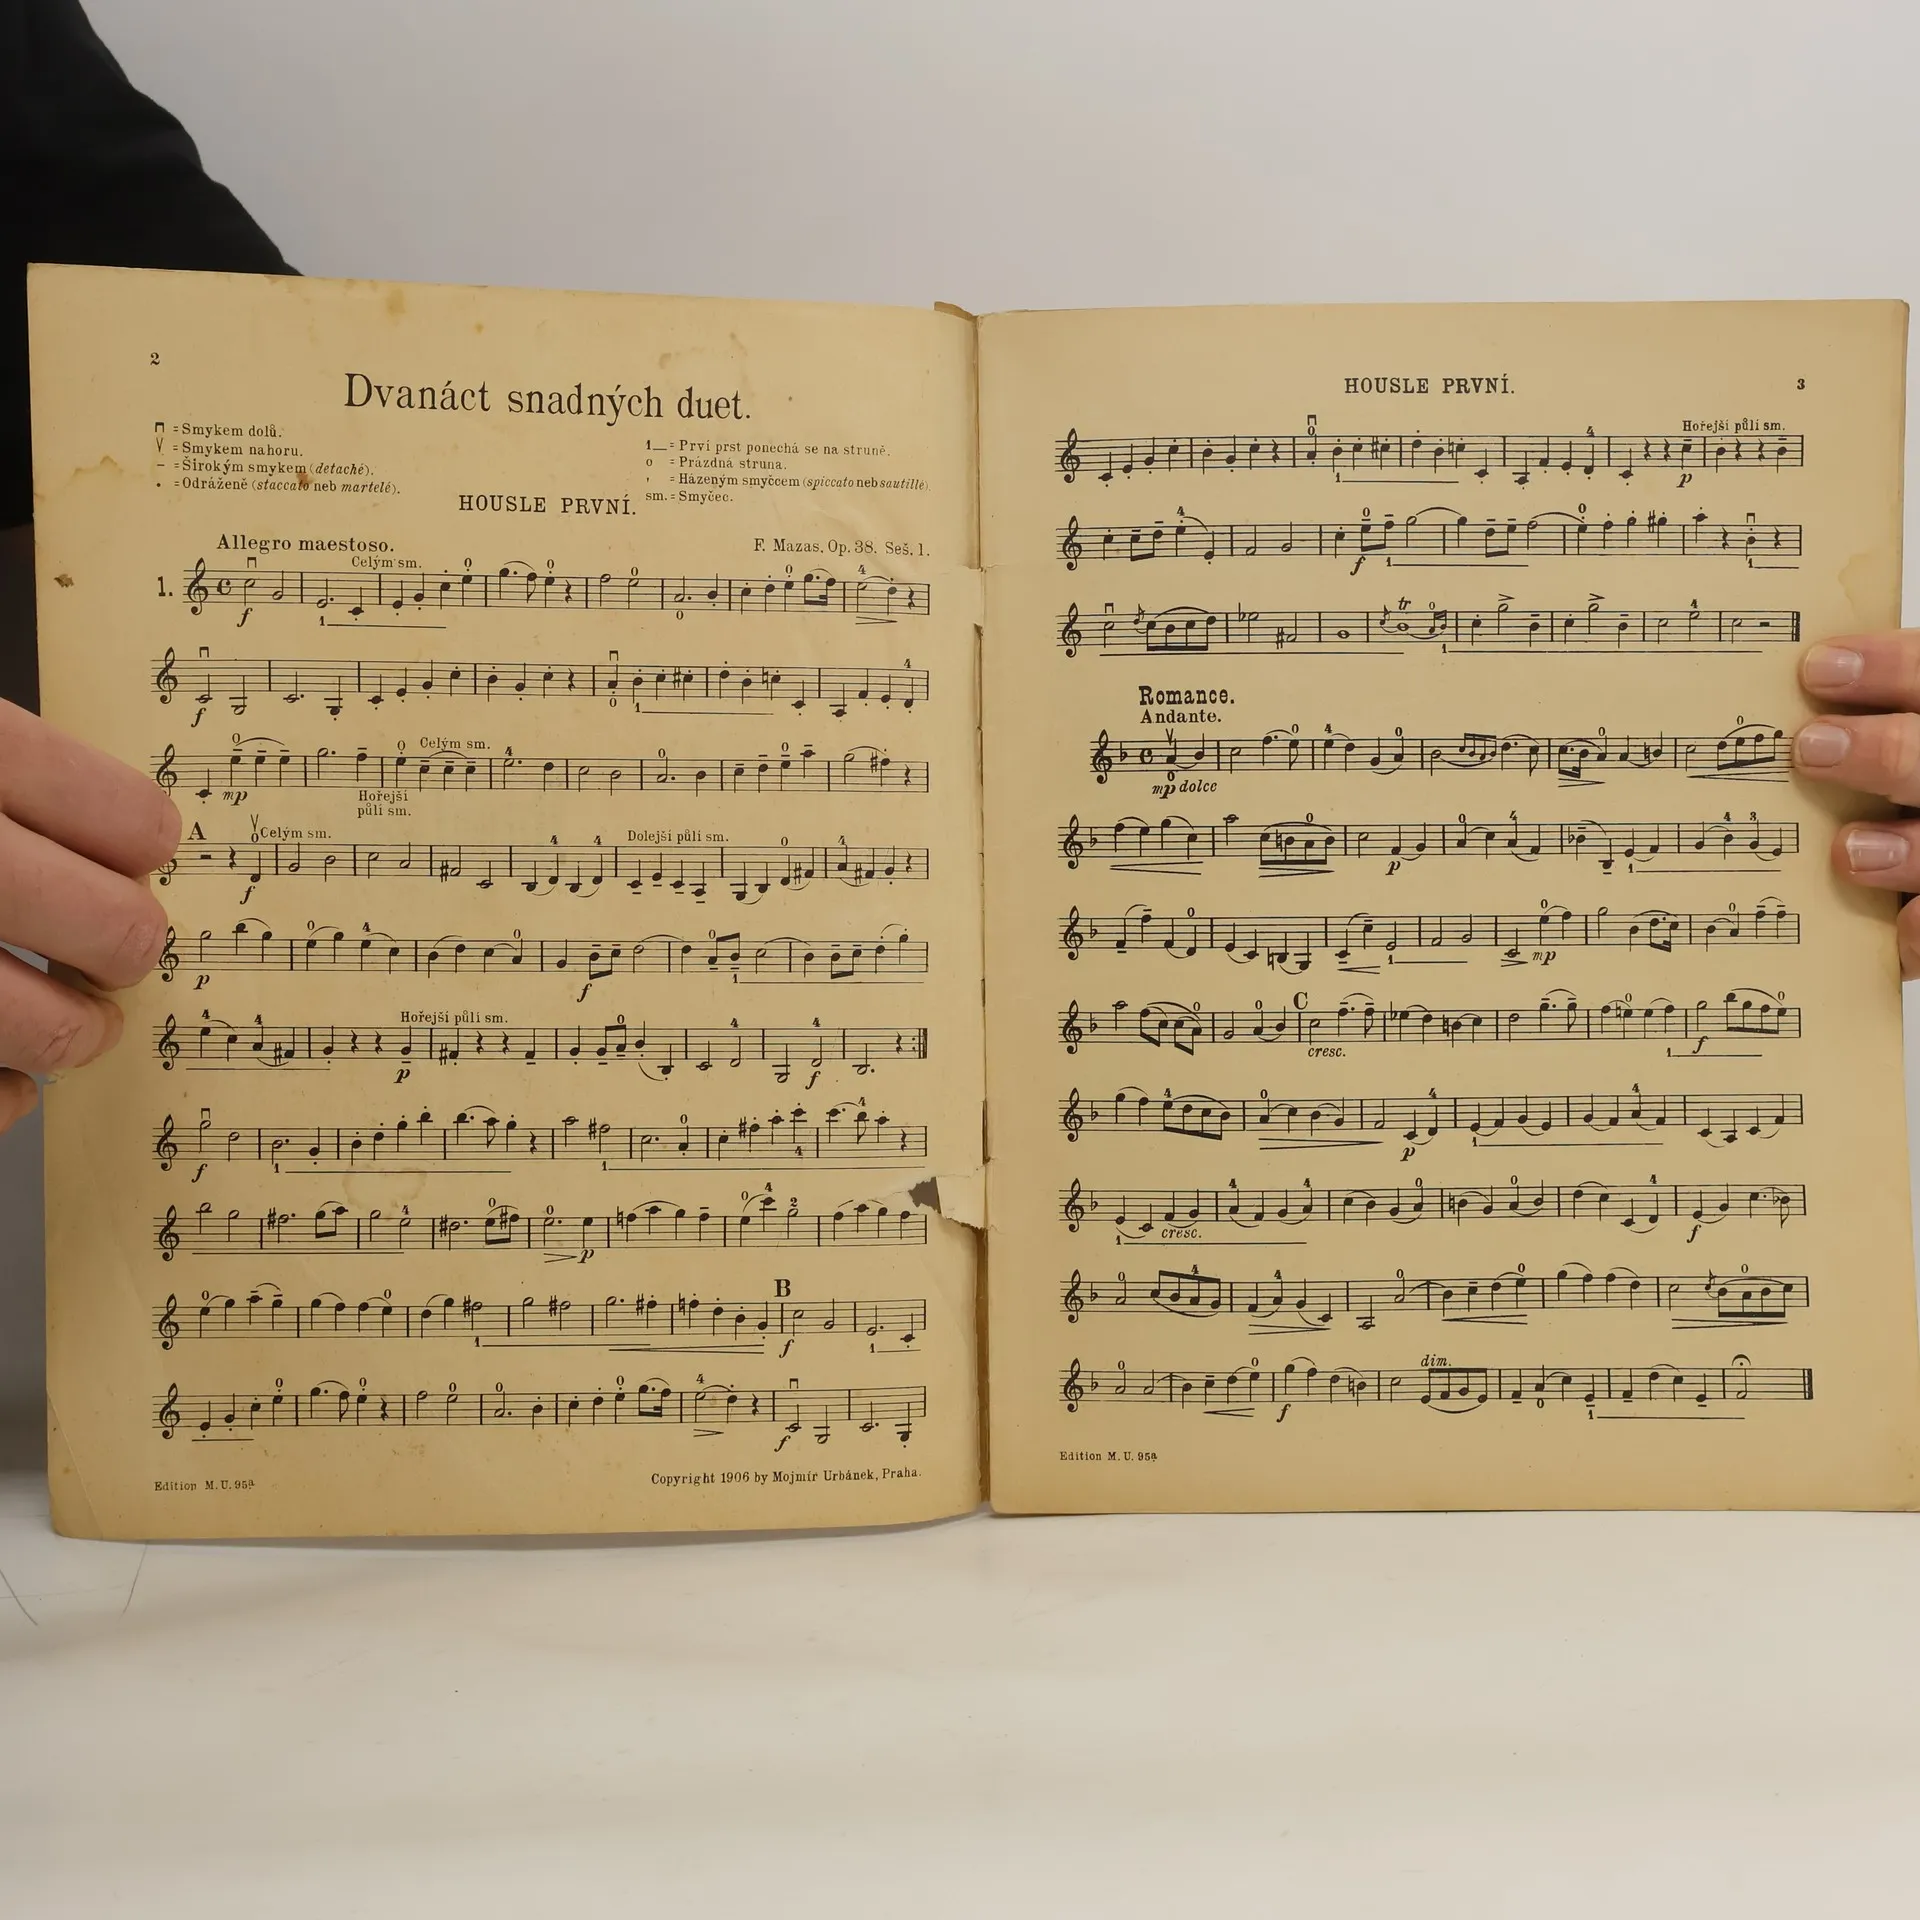 2
Dvanáct snadných duet.
⊓ = Smykem dolů.
V = Smykem nahoru.
– = Širokým smykem (detaché).
. = Odráženě (staccato neb martelé).
1— = Prvi prst ponechá se na struně.
o = Prázdná struna.
' = Házeným smyčcem (spiccato neb sautillé).
sm. = Smyčec.
HOUSLE PRVNÍ.
Allegro maestoso.
F. Mazas, Op. 38. Seš. 1.
Celým sm.
1.
f
f
Celým sm.
mp
Hořejší
půli sm.
A
Celým sm.
Dolejší půli sm.
f
p
f
Hořejší půli sm.
p
f
f
p
B
f
f
Edition M. U. 95a
Copyright 1906 by Mojmír Urbánek, Praha.
HOUSLE PRVNÍ.
3
Hořejší půli sm.
p
f
tr
Romance.
Andante.
mp dolce
p
mp
C
cresc.
f
p
cresc.
f
dim.
f
Edition M. U. 95a